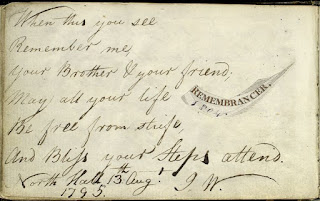 When this you see
Remember me,
Your Brother & your friend;
May all your life
REMEMBRANCER.
Be free from strife,
And Bliss your Steps attend.
North Hall 13th Augt J. W.
1795.